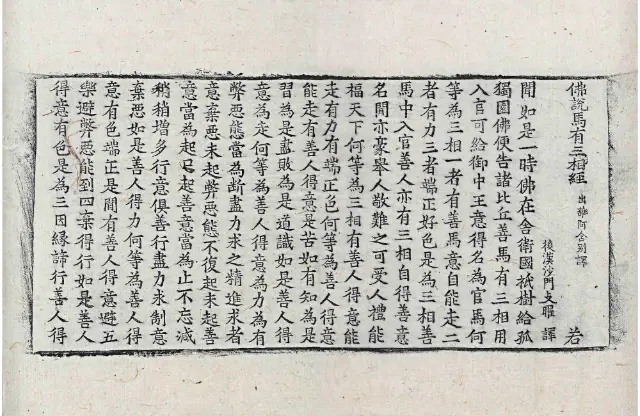 佛說馬有三相經 出雜阿含別譯 若
後漢沙門支曜 譯
聞如是一時佛在舍衛國祇樹給孤
獨園佛便告諸比丘善馬有三相用
入官可給御中王意得名為官馬何
等為三相一者有善馬意自能走二
者有力三者端正好色是為三相善
馬中入官善人亦有三相自得善意
名聞亦豪舉人敬難之可愛人禮能
福天下何等為三相有善人得意能
走有力有端正色何等為善人得意
能走有善人得意是苦如有知為是
習為是盡敗為是道識如是善人得
意為走何等為善人得意為力為有
弊惡態當為斷盡力求之精進求者
意棄惡未起弊惡態不復起未起善
意當為起已起善意當為止不忘減
稍稍增多行意俱善行盡力求制意
棄惡如是善人得力何等為善人得
意有色端正是間有善人得意避五
樂避弊惡能到四棄得行如是善人
得意有色是為三因緣諦行善人得